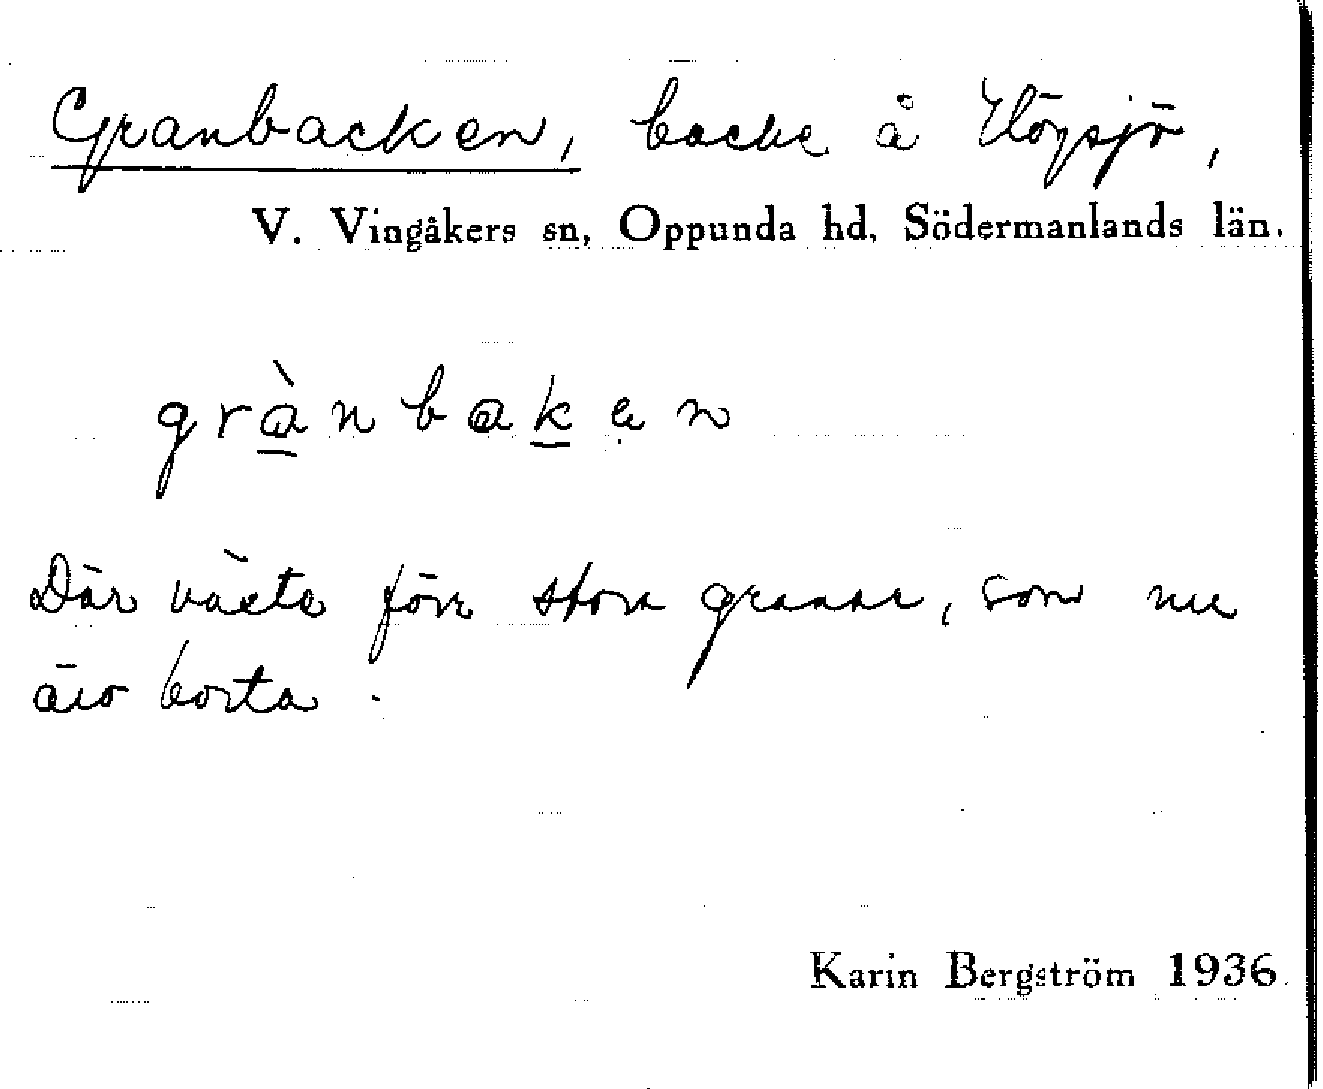 Granbacken, backe å Högsjö,
V. Vingåkers sn, Oppunda hd, Södermanlands län.
grànbaken
Där växte förr stora granar, som nu
äro borta.
Karin Bergström 1936